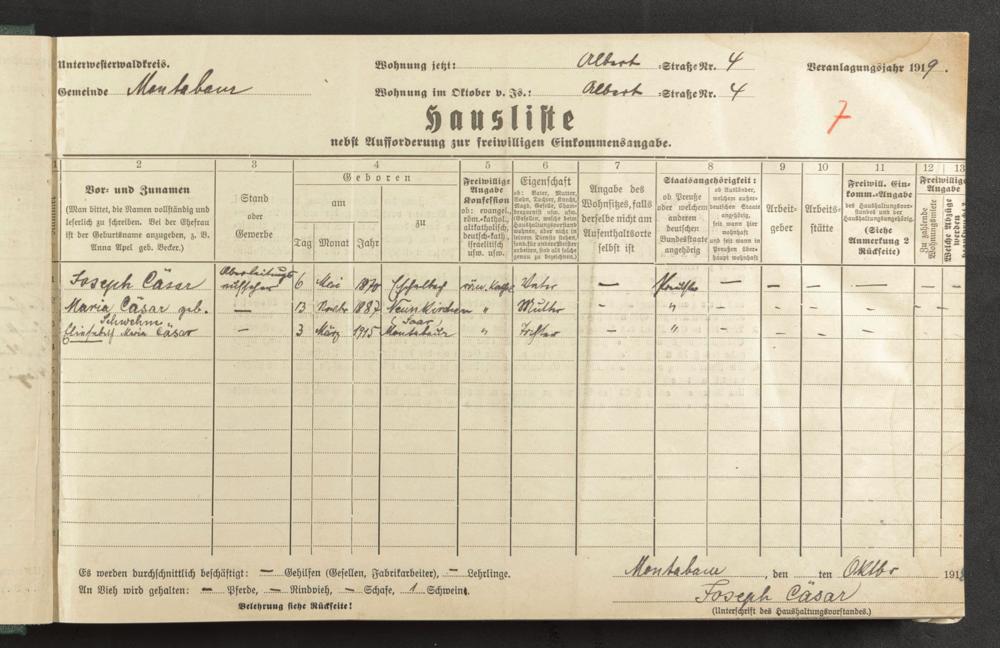 Unterwesterwaldkreis. Wohnung jetzt: Albert =Straße Nr. 4 Veranlagungsjahr 1919.
Gemeinde Montabaur Wohnung im Oktober v. Js.: Albert =Straße Nr. 4
7
Hausliste
nebst Aufforderung zur freiwilligen Einkommensangabe.
1 2 3 4 5 6 7 8 9 10 11 12 13
Vor- und Zunamen
(Man bittet, die Namen vollständig und
leserlich zu schreiben. Bei der Ehefrau
ist der Geburtsname anzugeben, z. B.
Anna Apel geb. Becker.)
Stand
oder
Gewerbe
Geboren
am
zu
Tag Monat Jahr
Freiwillige
Angabe
Konfession
ob: evangel.,
röm.-kathol.,
altkatholisch,
deutsch-kath.,
israelitisch
usw. usw.
Eigenschaft
ob: Vater, Mutter,
Sohn, Tochter, Knecht,
Magd, Geselle,
Angabe des
Wohnsitzes, falls
derselbe nicht am
Aufenthaltsorte
selbst ist
Staatsangehörigkeit:
ob Preuße
oder welchem
anderen
deutschen
Bundesstaate
angehörig
ob Ausländer,
welchem außer-
deutschen Staate
angehörig,
seit wann hier
wohnhaft
und seit wann in
Preußen über-
haupt wohnhaft
Arbeit-
geber
Arbeits-
stätte
Freiwill. Ein-
komm.-Angabe
des Haushaltungsvor-
standes und der
Haushaltungsangehörig.
(Siehe
Anmerkung 2
Rückseite)
Freiwillige
Angabe
Zu zahlende
Wohnungsmiete
Welche Abzüge
werden
Joseph Cäsar 6 Mai Vater — Preuße — — — — —
Maria Cäsar geb. — 13 Novbr 1887 Neunkirchen " Mutter — " — — — — —
Schwehm Saar
Elisabeth Maria Cäsar — 3 März 1915 Montabaur " Tochter — " — — — — —
Es werden durchschnittlich beschäftigt: — Gehilfen (Gesellen, Fabrikarbeiter), — Lehrlinge.
An Vieh wird gehalten: — Pferde, — Rindvieh, — Schafe, 1 Schweine.
Belehrung siehe Rückseite!
Montabaur, den ten Oktbr 1918
Joseph Cäsar
(Unterschrift des Haushaltungsvorstandes.)